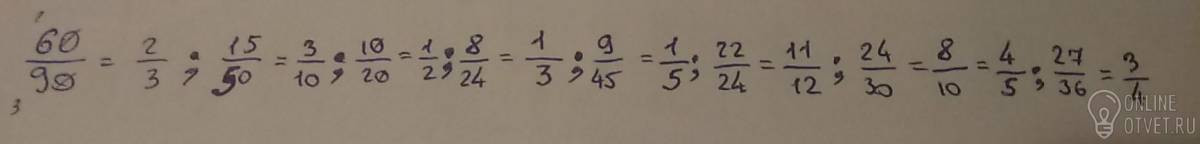 60/90 = 2/3 ; 15/50 = 3/10 ; 10/20 = 1/2 ; 8/24 = 1/3 ; 9/45 = 1/5 ; 22/24 = 11/12 ; 24/30 = 8/10 = 4/5 ; 27/36 = 3/4
3
ONLINE
OTVET.RU